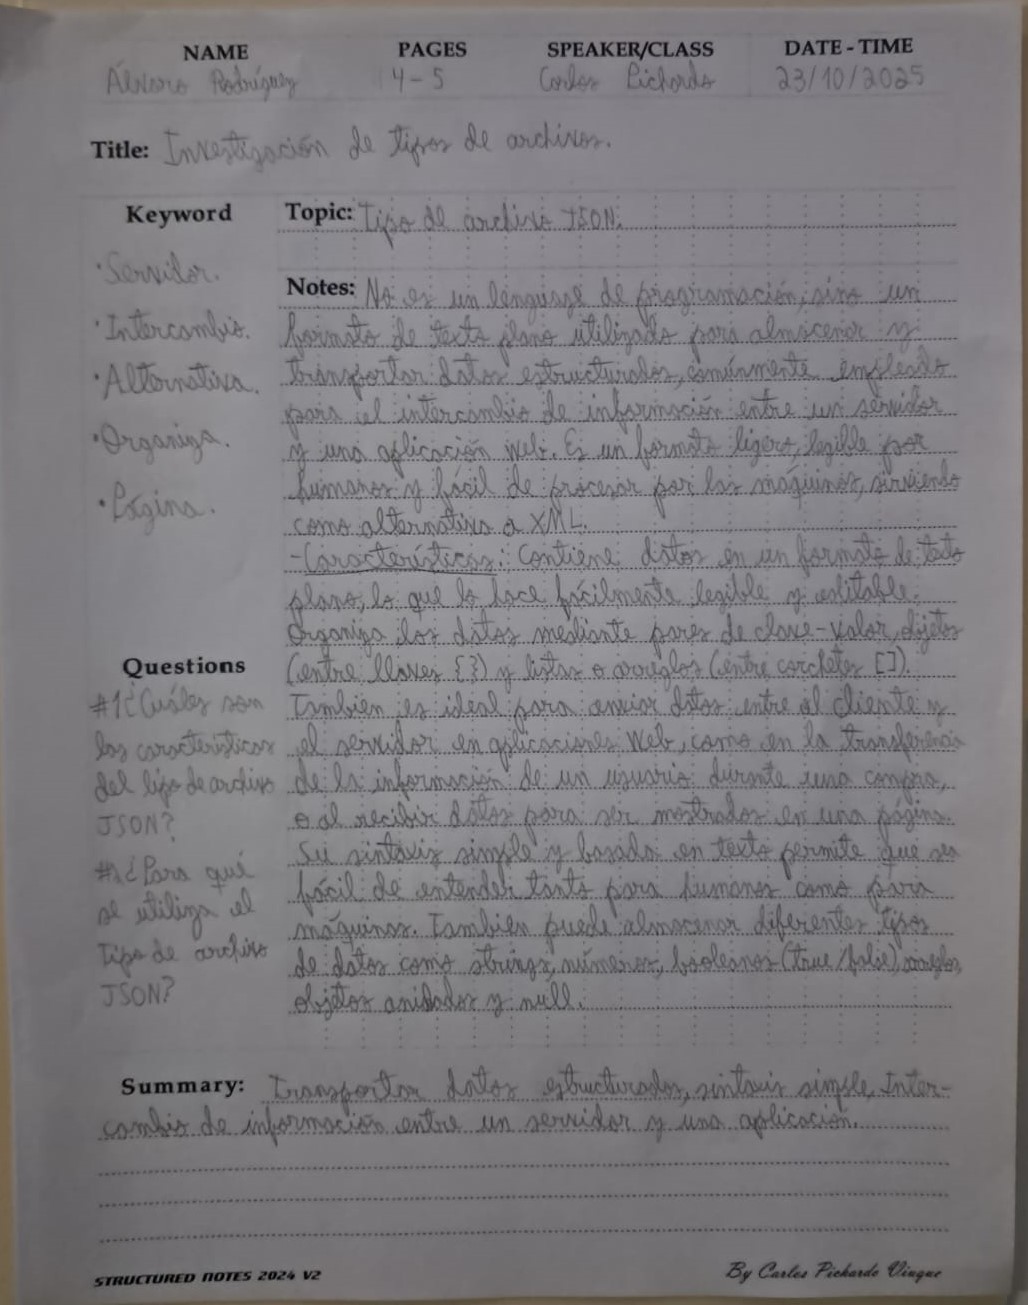 NAME PAGES SPEAKER/CLASS DATE - TIME
Álvaro Rodríguez 4-5 Carlos Pichardo 23/10/2025
Title: Investigación de tipos de archivos.
Keyword
·Servidor.
·Intercambio.
·Alternativa.
·Organiza.
·Página.
Topic: Tipo de archivo JSON.
Notes: No es un lenguage de programación, sino un
formato de texto plano utilizado para almacenar y
transportar datos estructurados, comúnmente empleado
para el intercambio de información entre un servidor
y una aplicación web. Es un formato ligero, legible por
humanos y fácil de procesar por las máquinas, sirviendo
como alternativa a XML.
-Características: Contiene datos en un formato de texto
plano, lo que lo hace fácilmente legible y editable.
Organiza los datos mediante pares de clave-valor, objetos
(entre llaves {}) y listas o arreglos (entre corchetes []).
También es ideal para enviar datos entre el cliente y
el servidor en aplicaciones web, como en la transferencia
de la información de un usuario durante una compra,
o al recibir datos para ser mostrados en una página.
Su sintaxis simple y basada en texto permite que sea
fácil de entender tanto para humanos como para
máquinas. También puede almacenar diferentes tipos
de datos como strings, números, booleanos (true/false), arreglos,
objetos anidados y null.
Questions
#1¿Cuáles son
las características
del tipo de archivo
JSON?
¿Para qué
se utiliza el
Tipo de archivo
JSON?
Summary: Transportar datos estructurados, sintaxis simple, Inter-
cambio de información entre un servidor y una aplicación.
STRUCTURED NOTES 2024 V2
By Carlos Pichardo Viuque